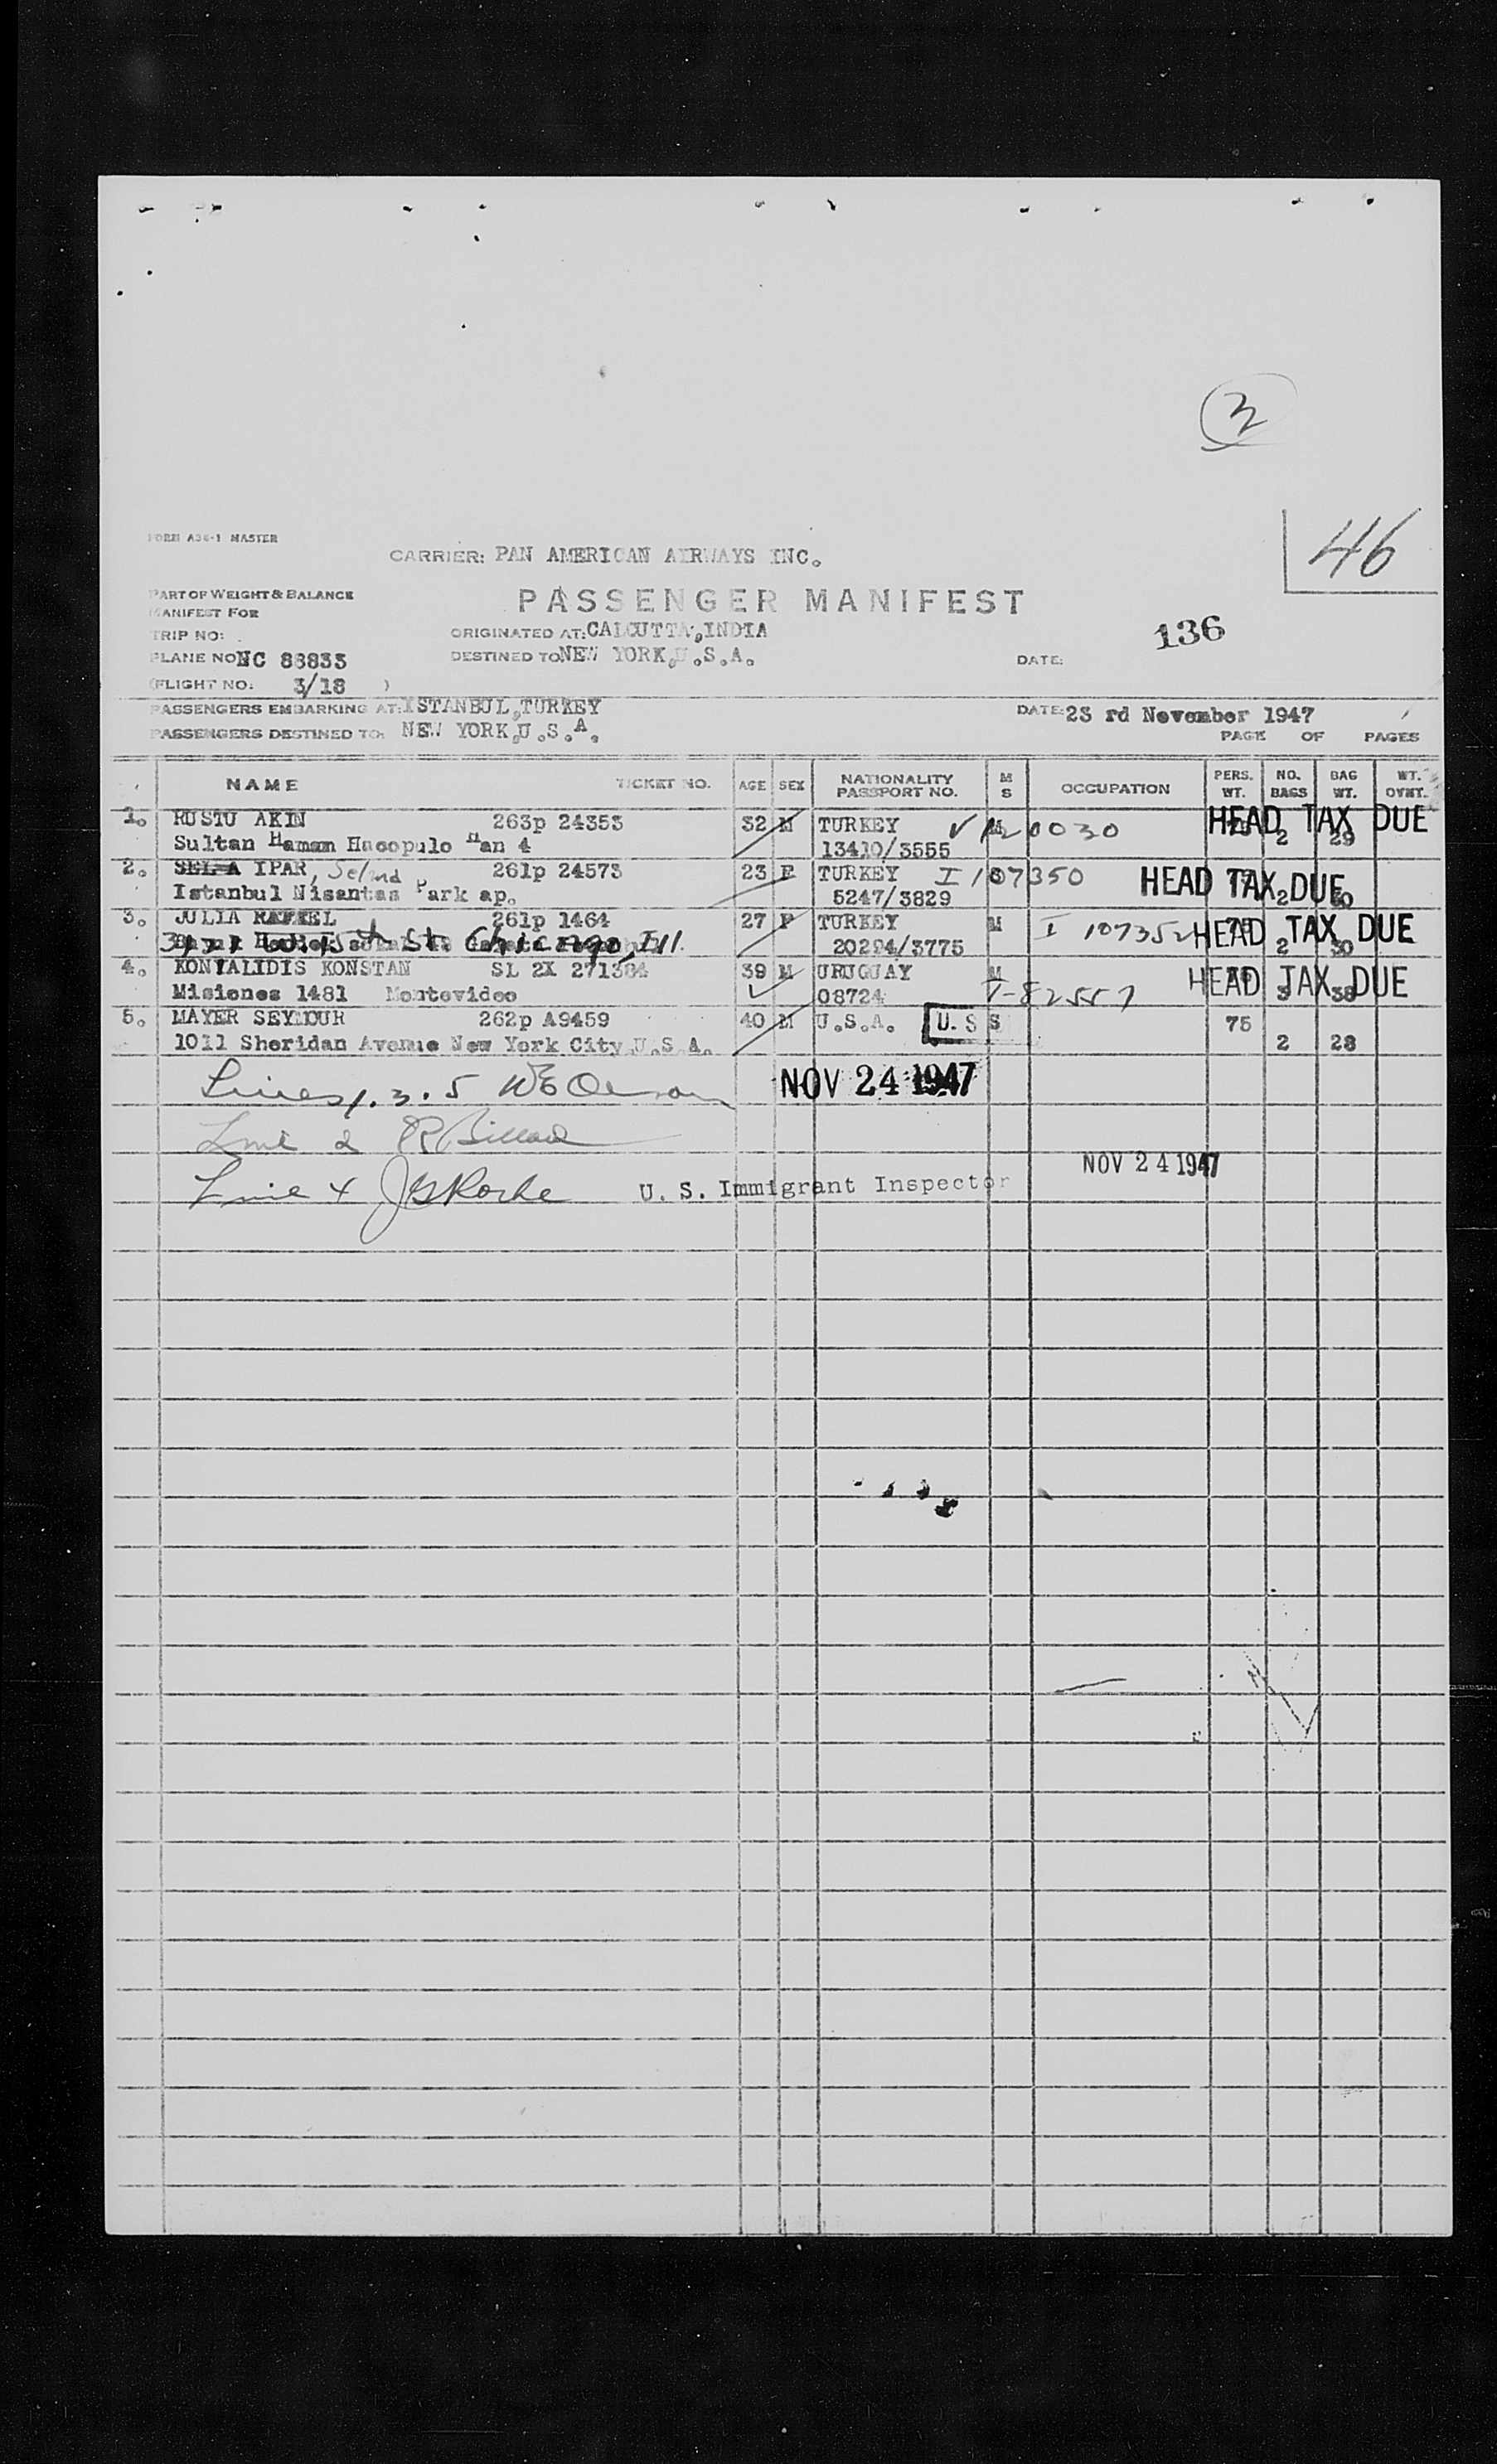 3
46
FORM A36-1 MASTER
CARRIER: PAN AMERICAN AIRWAYS INC.
PART OF WEIGHT & BALANCE
MANIFEST FOR
PASSENGER MANIFEST
136
TRIP NO:
ORIGINATED AT: CALCUTTA, INDIA
PLANE NO NC 88833
DESTINED TO NEW YORK, U.S.A.
DATE:
(FLIGHT NO: 3/18 )
PASSENGERS EMBARKING AT: ISTANBUL, TURKEY
DATE: 23 rd November 1947
PASSENGERS DESTINED TO: NEW YORK, U.S.A.
PAGE OF PAGES
NAME TICKET NO. AGE SEX NATIONALITY PASSPORT NO. M S OCCUPATION PERS. WT. NO. BAGS BAG WT. WT. OVHT.
1. RUSTU AKIN 263p 24353 32 M TURKEY M V 120030 HEAD TAX DUE
Sultan Hamam Hacopulo Han 4 13410/3555 2 29
2. IPAR, Selma 261p 24573 23 F TURKEY S I 107350 HEAD TAX DUE
Istanbul Nisantas Park ap. 5247/3829 2
3. JULIA 261p 1464 27 F TURKEY M I 107352 HEAD TAX DUE
W. 15th St. Chicago, Ill. 20294/3775 2 30
4. KONYALIDIS KONSTAN SL 2X 271384 39 M URUGUAY M HEAD TAX DUE
Misiones 1481 Montevideo 08724 T-82557 3 38
5. MAYER SEYMOUR 262p A9459 40 M U.S.A. U. S S 75
1011 Sheridan Avenue New York City U.S A. 2 28
Lines 1. 3. 5 NOV 24 1947
Line 2
NOV 24 1947
Line 4 U. S. Immigrant Inspector